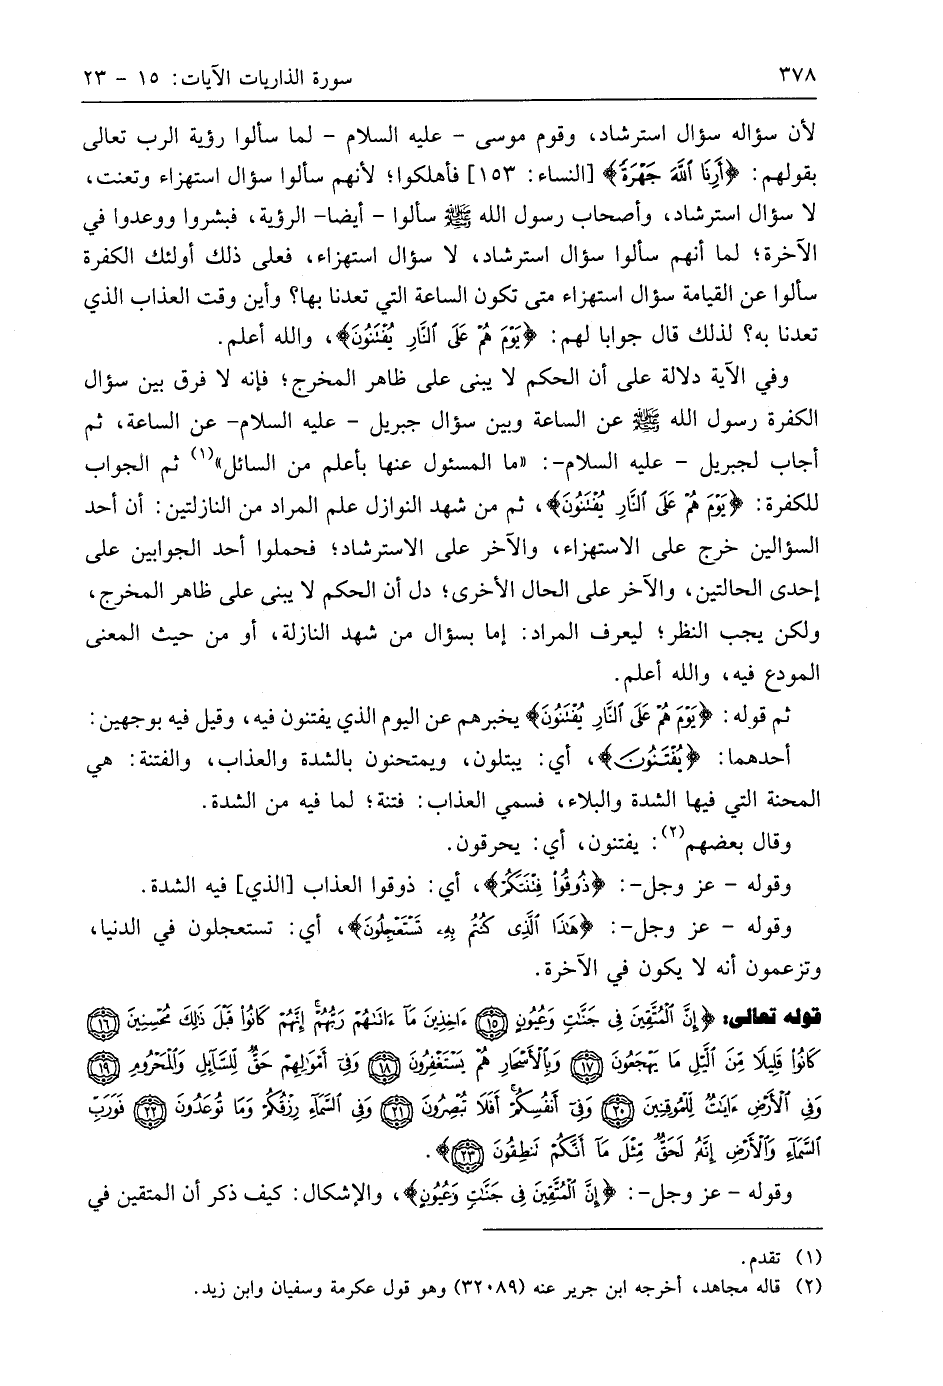 ٣٧٨ سورة الذاريات الآيات: ١٥ - ٢٣
لأن سؤاله سؤال استرشاد، وقوم موسى - عليه السلام - لما سألوا رؤية الرب تعالى
بقولهم: ﴿أَرِنَا ٱللَّهَ جَهْرَةً﴾ [النساء: ١٥٣] فأهلكوا؛ لأنهم سألوا سؤال استهزاء وتعنت،
لا سؤال استرشاد، وأصحاب رسول الله ﷺ سألوا - أيضا- الرؤية، فبشروا ووعدوا في
الآخرة؛ لما أنهم سألوا سؤال استرشاد، لا سؤال استهزاء، فعلى ذلك أولئك الكفرة
سألوا عن القيامة سؤال استهزاء متى تكون الساعة التي تعدنا بها؟ وأين وقت العذاب الذي
تعدنا به؟ لذلك قال جوابا لهم: ﴿يَوْمَ هُمْ عَلَى ٱلنَّارِ يُفْتَنُونَ﴾، والله أعلم.
وفي الآية دلالة على أن الحكم لا يبنى على ظاهر المخرج؛ فإنه لا فرق بين سؤال
الكفرة رسول الله ﷺ عن الساعة وبين سؤال جبريل - عليه السلام- عن الساعة، ثم
أجاب لجبريل - عليه السلام-: «ما المسئول عنها بأعلم من السائل»(١) ثم الجواب
للكفرة: ﴿يَوْمَ هُمْ عَلَى ٱلنَّارِ يُفْتَنُونَ﴾، ثم من شهد النوازل علم المراد من النازلتين: أن أحد
السؤالين خرج على الاستهزاء، والآخر على الاسترشاد؛ فحملوا أحد الجوابين على
إحدى الحالتين، والآخر على الحال الأخرى؛ دل أن الحكم لا يبنى على ظاهر المخرج،
ولكن يجب النظر؛ ليعرف المراد: إما بسؤال من شهد النازلة، أو من حيث المعنى
المودع فيه، والله أعلم.
ثم قوله: ﴿يَوْمَ هُمْ عَلَى ٱلنَّارِ يُفْتَنُونَ﴾ يخبرهم عن اليوم الذي يفتنون فيه، وقيل فيه بوجهين:
أحدهما: ﴿يُفْتَنُونَ﴾، أي: يبتلون، ويمتحنون بالشدة والعذاب، والفتنة: هي
المحنة التي فيها الشدة والبلاء، فسمي العذاب: فتنة؛ لما فيه من الشدة.
وقال بعضهم(٢): يفتنون، أي: يحرقون.
وقوله - عز وجل-: ﴿ذُوقُوا۟ فِتْنَتَكُمْ﴾، أي: ذوقوا العذاب [الذي] فيه الشدة.
وقوله - عز وجل-: ﴿هَٰذَا ٱلَّذِى كُنتُم بِهِۦ تَسْتَعْجِلُونَ﴾، أي: تستعجلون في الدنيا،
وتزعمون أنه لا يكون في الآخرة.
قوله تعالى: ﴿إِنَّ ٱلْمُتَّقِينَ فِى جَنَّٰتٍ وَعُيُونٍ ١٥ ءَاخِذِينَ مَآ ءَاتَىٰهُمْ رَبُّهُمْ ۚ إِنَّهُمْ كَانُوا۟ قَبْلَ ذَٰلِكَ مُحْسِنِينَ ١٦
كَانُوا۟ قَلِيلًا مِّنَ ٱلَّيْلِ مَا يَهْجَعُونَ ١٧ وَبِٱلْأَسْحَارِ هُمْ يَسْتَغْفِرُونَ ١٨ وَفِىٓ أَمْوَٰلِهِمْ حَقٌّ لِّلسَّآئِلِ وَٱلْمَحْرُومِ ١٩
وَفِى ٱلْأَرْضِ ءَايَٰتٌ لِّلْمُوقِنِينَ ٢٠ وَفِىٓ أَنفُسِكُمْ ۚ أَفَلَا تُبْصِرُونَ ٢١ وَفِى ٱلسَّمَآءِ رِزْقُكُمْ وَمَا تُوعَدُونَ ٢٢ فَوَرَبِّ
ٱلسَّمَآءِ وَٱلْأَرْضِ إِنَّهُۥ لَحَقٌّ مِّثْلَ مَآ أَنَّكُمْ تَنطِقُونَ ٢٣﴾.
وقوله - عز وجل-: ﴿إِنَّ ٱلْمُتَّقِينَ فِى جَنَّٰتٍ وَعُيُونٍ﴾، والإشكال: كيف ذكر أن المتقين في
(١) تقدم.
(٢) قاله مجاهد، أخرجه ابن جرير عنه (٣٢٠٨٩) وهو قول عكرمة وسفيان وابن زيد.